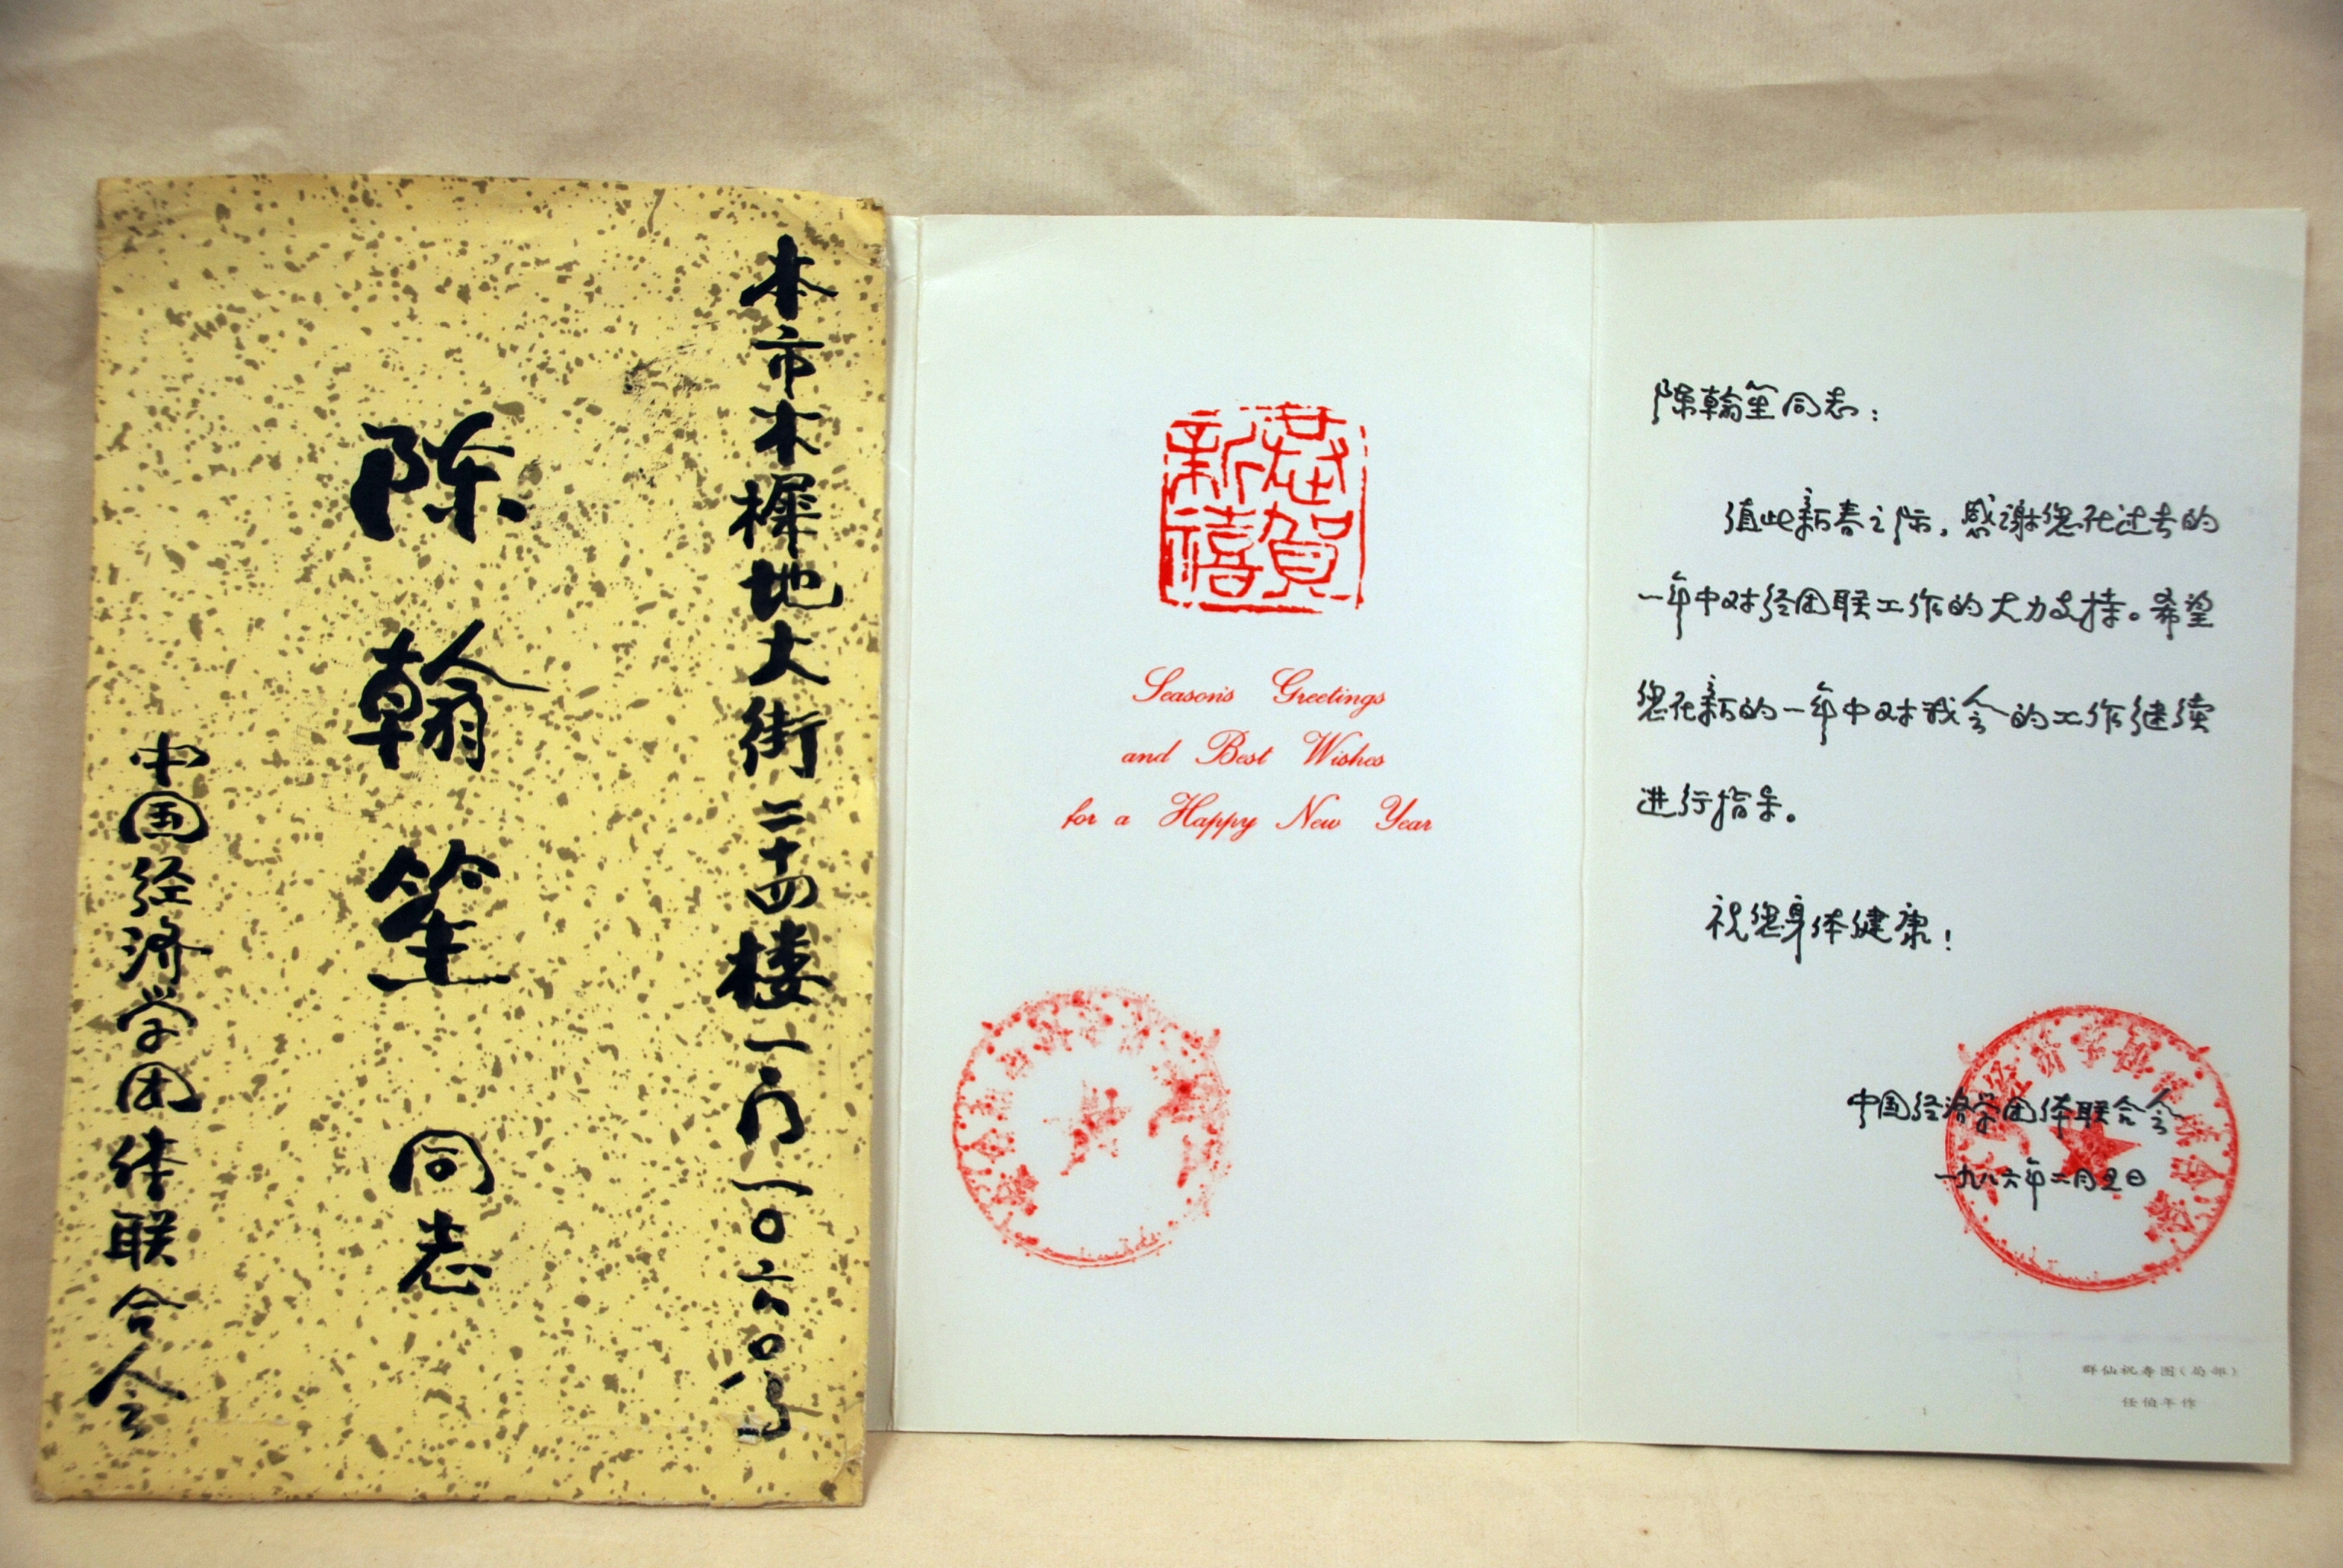 本市木樨地大街二十四楼一门一〇六〇号
陈翰笙同志
中国经济学团体联合会
恭贺
新禧
Season's Greetings
and Best Wishes
for a Happy New Year
陈翰笙同志：
值此新春之际，感谢您在过去的
一年中对经团联工作的大力支持。希望
您在新的一年中对我会的工作继续
进行指导。
祝您身体健康！
中国经济学团体联合会
一九八六年二月五日
群仙祝寿图（局部）
任伯年作